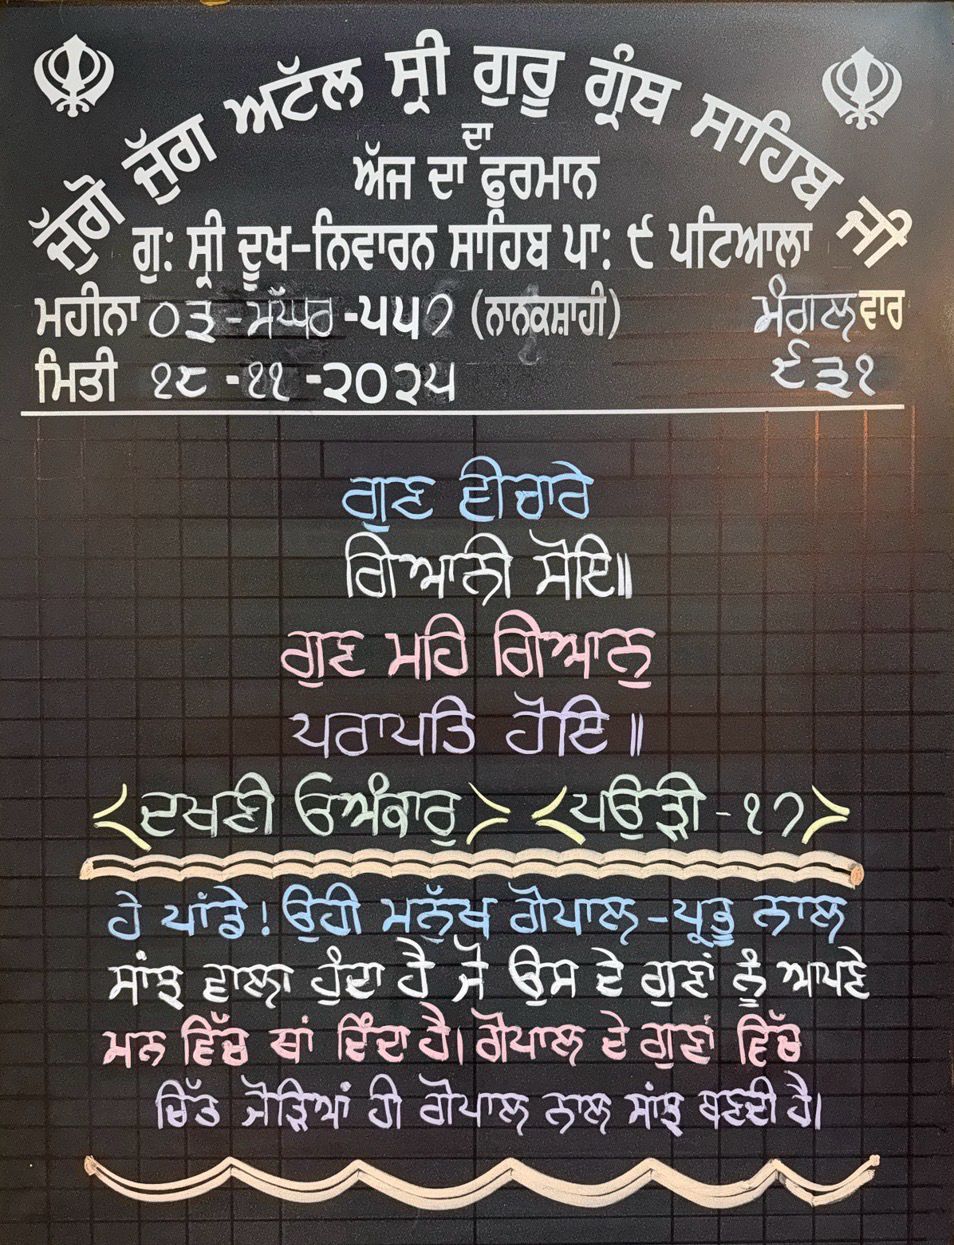 ਜੁੱਗੋ ਜੁੱਗ ਅਟੱਲ ਸ੍ਰੀ ਗੁਰੂ ਗ੍ਰੰਥ ਸਾਹਿਬ ਜੀ
ਦਾ
ਅੱਜ ਦਾ ਫੂਰਮਾਨ
ਗੁ: ਸ੍ਰੀ ਦੂਖ-ਨਿਵਾਰਨ ਸਾਹਿਬ ਪਾ: ੯ ਪਟਿਆਲਾ
ਮਹੀਨਾ ੦੩-ਮੱਘਰ-੫੫੭ (ਨਾਨਕਸ਼ਾਹੀ) ਮੰਗਲਵਾਰ
ਮਿਤੀ ੧੮-੧੧-੨੦੨੫ ੯੩੧
ਗੁਣ ਵੀਚਾਰੇ
ਗਿਆਨੀ ਸੋਇ॥
ਗੁਣ ਮਹਿ ਗਿਆਨੁ
ਪਰਾਪਤਿ ਹੋਇ॥
ਦਖਣੀ ਓਅੰਕਾਰੁ ਪਉੜੀ-੧੭
ਹੇ ਪਾਂਡੇ! ਉਹੀ ਮਨੁੱਖ ਗੋਪਾਲ-ਪ੍ਰਭੂ ਨਾਲ
ਸਾਂਝ ਵਾਲਾ ਹੁੰਦਾ ਹੈ ਜੋ ਉਸ ਦੇ ਗੁਣਾਂ ਨੂੰ ਆਪਣੇ
ਮਨ ਵਿੱਚ ਥਾਂ ਦਿੰਦਾ ਹੈ। ਗੋਪਾਲ ਦੇ ਗੁਣਾਂ ਵਿੱਚ
ਚਿੱਤ ਜੋੜਿਆਂ ਹੀ ਗੋਪਾਲ ਨਾਲ ਸਾਂਝ ਬਣਦੀ ਹੈ।